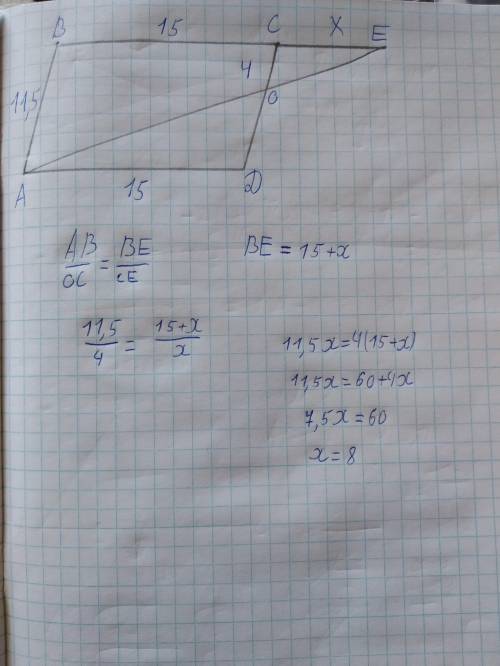 B 15 C X E
4
11,5 O
A 15 D
AB/OC = BE/CE BE = 15+x
11,5/4 = 15+x/x 11,5x=4(15+x)
11,5x=60+4x
7,5x=60
x=8